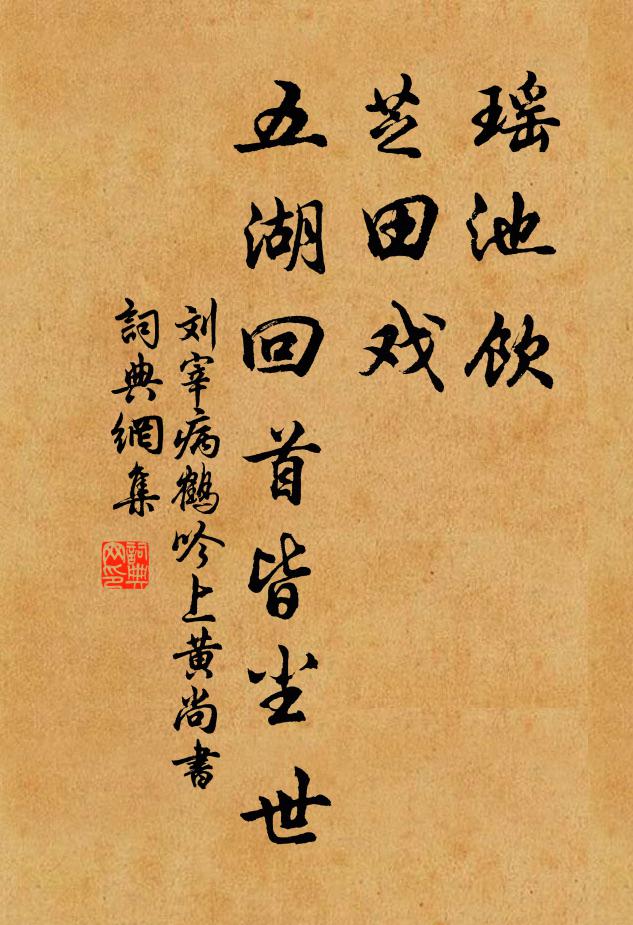 瑶池饮
芝田戏
五湖回首皆尘世
刘宰病鹤吟上黄尚书
詞典網集
詞典網印